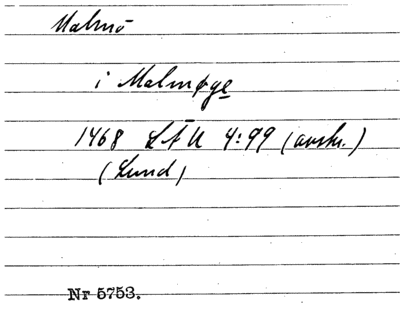 Malmö
i Malmøye
1468 LÄU 4:99 (avskr.)
(Lund)
Nr 5753.